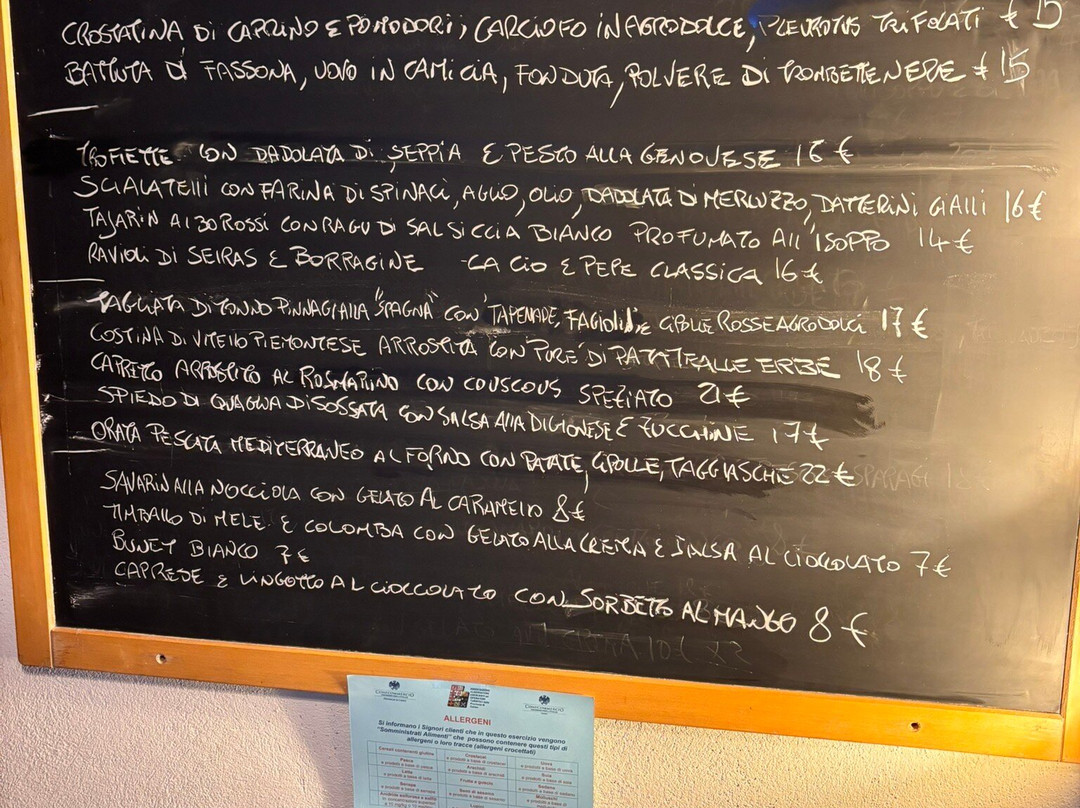 CROSTATINA DI CAPRINO E POMODORI, CARCIOFO IN AGRODOLCE, PLEUROTUS TRIFOLATI € 15
BATTUTA DI FASSONA, UOVO IN CAMICIA, FONDUTA, POLVERE DI TROMBETTE NERE € 15
TROFIETTE CON DADOLATA DI SEPPIA E PESTO ALLA GENOVESE 16 €
SCIALATELLI CON FARINA DI SPINACI, AGLIO, OLIO, DADOLATA DI MERLUZZO, DATTERINI GIALLI 16 €
TAJARIN AI 30 ROSSI CON RAGU DI SALSICCIA BIANCO PROFUMATO ALL'ISOPPO 14 €
RAVIOLI DI SEIRAS E BORRAGINE CACIO E PEPE CLASSICA 16 €
TAGLIATA DI TONNO PINNAGIALLA "SPAGNA" CON TAPENADE, FAGIOLI E CIPOLLE ROSSE AGRODOLCI 17 €
COSTINA DI VITELLO PIEMONTESE ARROSTITA CON PURE' DI PATATE ALLE ERBE 18 €
CAPRETTO ARROSTITO AL ROSMARINO CON COUSCOUS SPEZIATO 21 €
SPIEDO DI QUAGLIA DISOSSATA CON SALSA ALLA DIGIONESE E ZUCCHINE 17 €
ORATA PESCATA MEDITERRANEO AL FORNO CON PATATE, CIPOLLE, TAGGIASCHE 22 €
SAVARIN ALLA NOCCIOLA CON GELATO AL CARAMELLO 8 €
TIMBALLO DI MELE E COLOMBA CON GELATO ALLA CREMA E SALSA AL CIOCCOLATO 7 €
BUNET BIANCO 7 €
CAPRESE E LINGOTTO AL CIOCCOLATO CON SORBETTO AL MANGO 8 €
ALLERGENI
Si informano i Signori clienti che in questo esercizio vengono
"Somministrati Alimenti" che possono contenere questi tipi di
allergeni o loro tracce (allergeni crocettati)
Cereali contenenti glutine
Crostacei
Uova
Pesce
Arachidi
Soia
Latte
Frutta a guscio
Sedano
Senape
Semi di sesamo
Molluschi